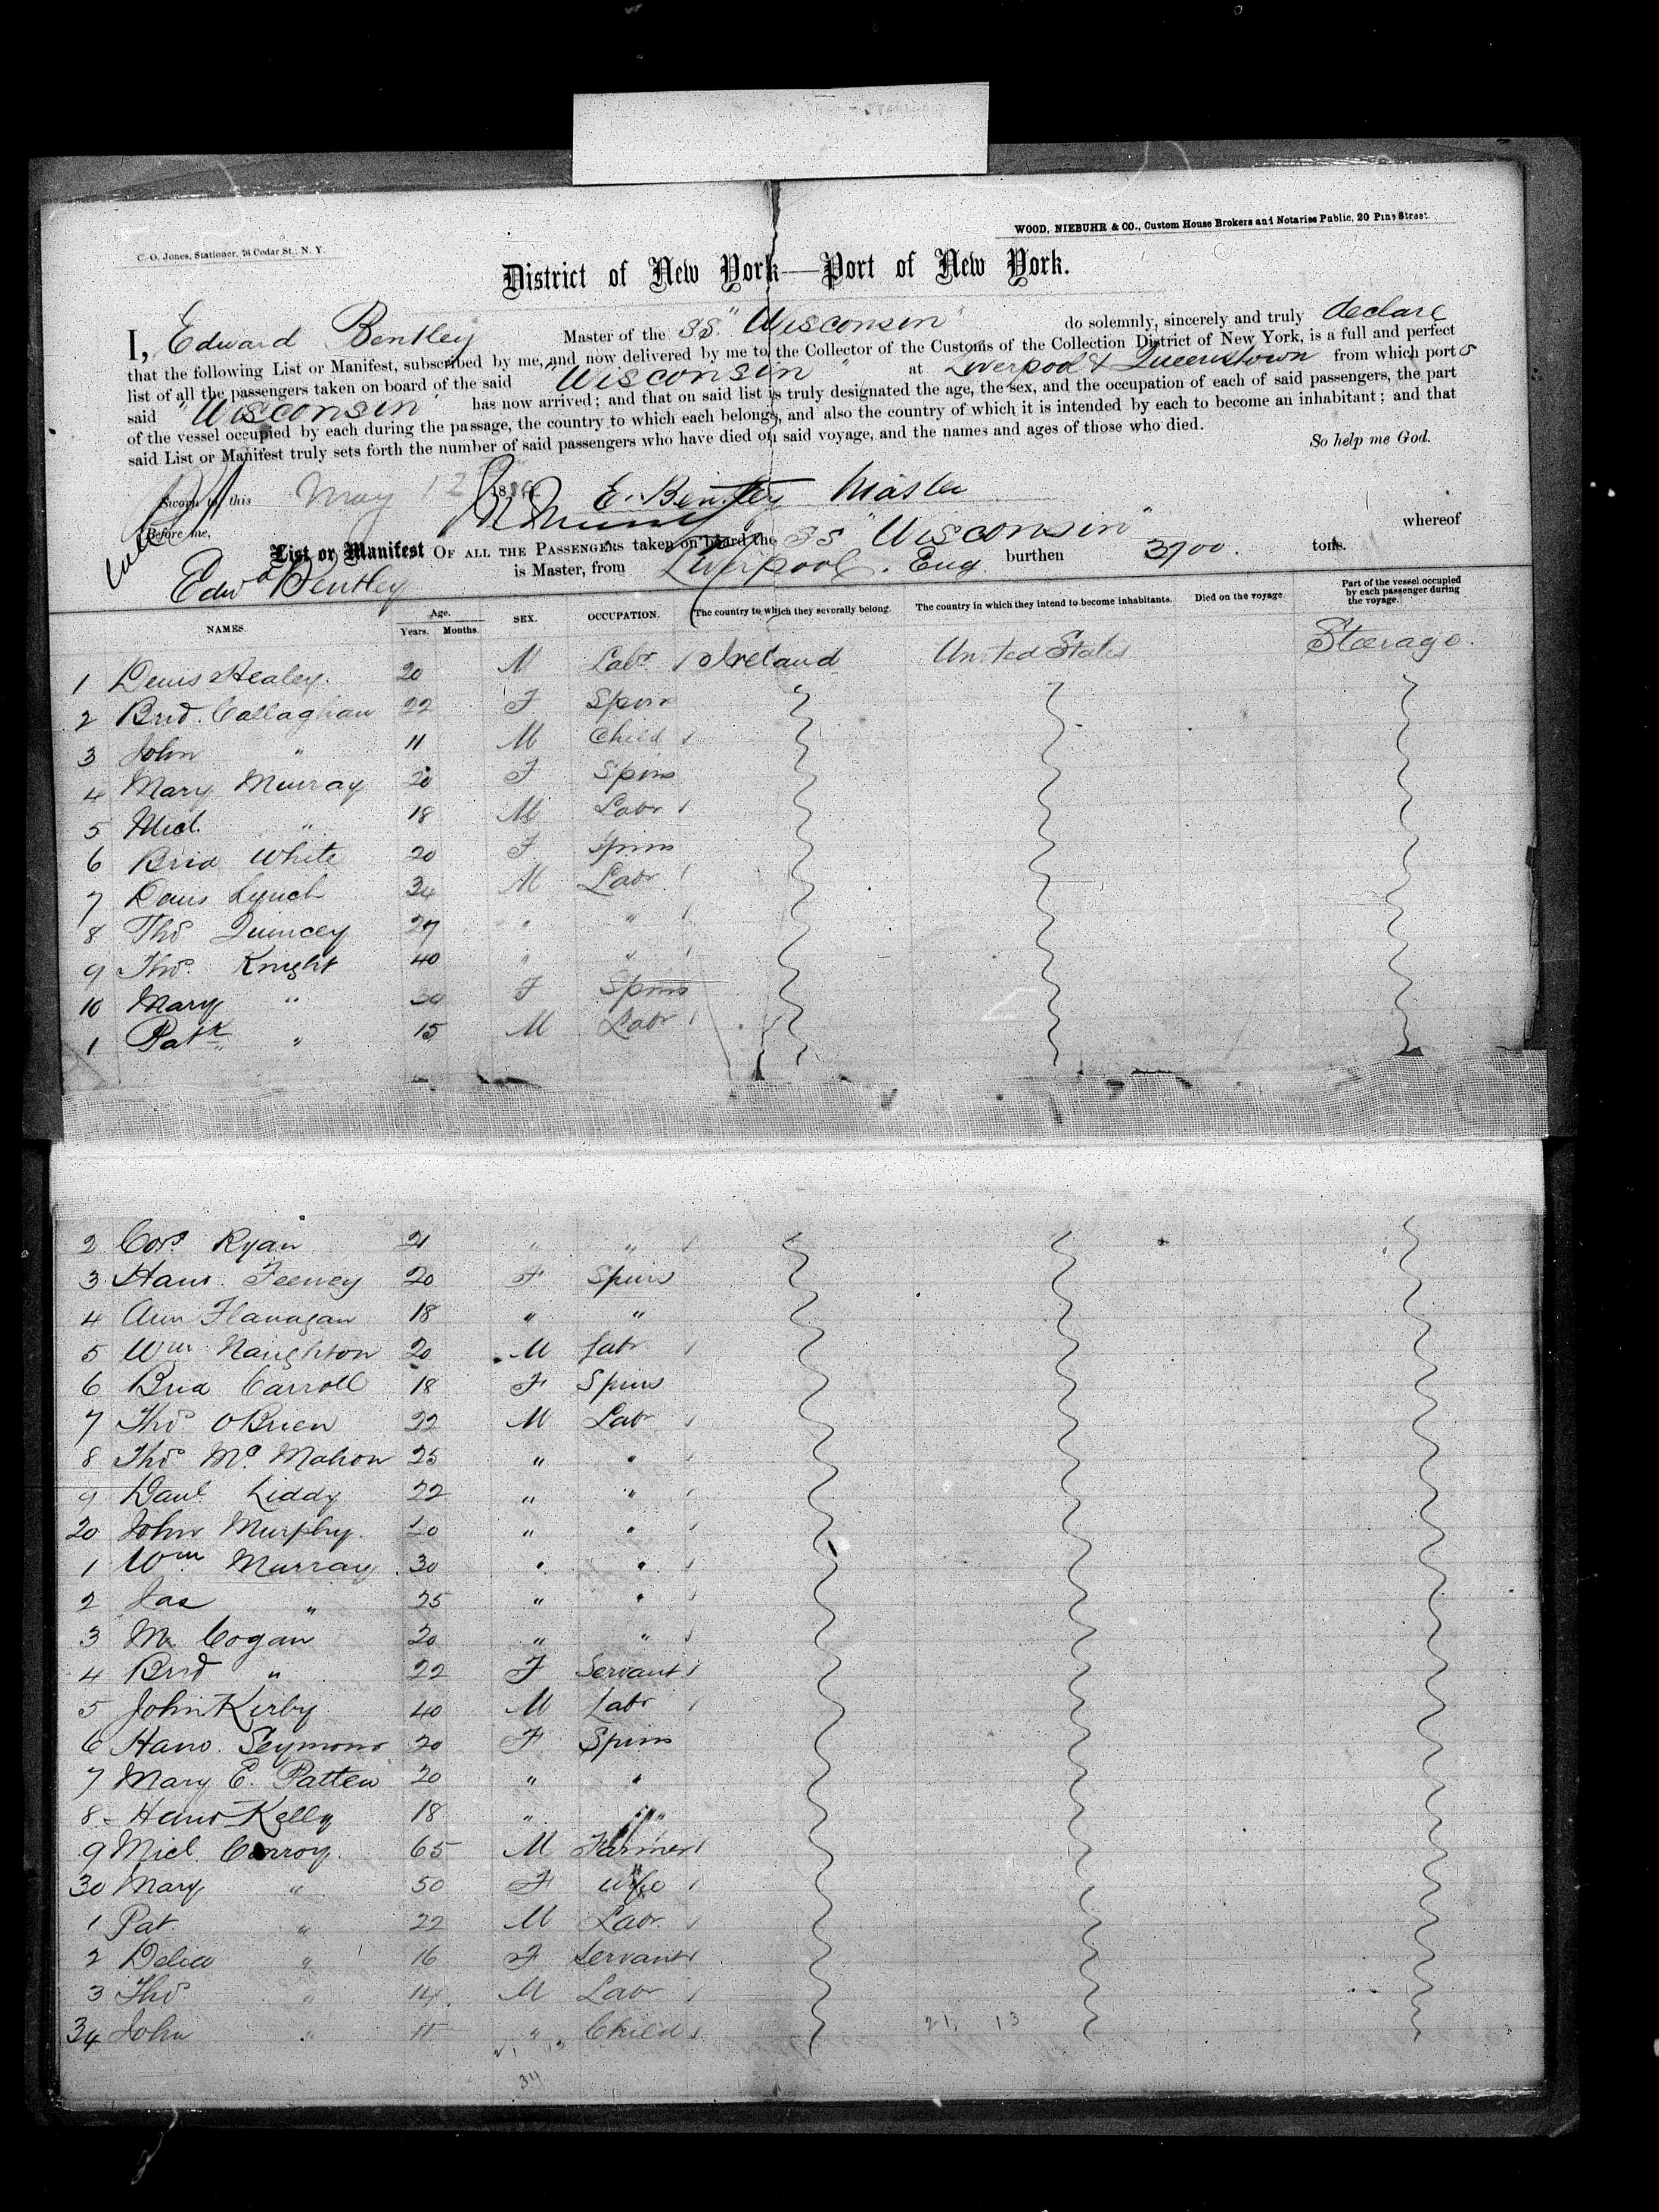 WOOD, NIEBUHR & CO., Custom House Brokers and Notaries Public, 20 Pine Street.
C. O. Jones, Stationer, 76 Cedar St., N. Y.
District of New York—Port of New York.
I, Edward Bentley Master of the SS. "Wisconsin" do solemnly, sincerely and truly declare
that the following List or Manifest, subscribed by me, and now delivered by me to the Collector of the Customs of the Collection District of New York, is a full and perfect
list of all the passengers taken on board of the said "Wisconsin" at Liverpool & Queenstown from which ports
said "Wisconsin" has now arrived; and that on said list is truly designated the age, the sex, and the occupation of each of said passengers, the part
of the vessel occupied by each during the passage, the country to which each belongs, and also the country of which it is intended by each to become an inhabitant; and that
said List or Manifest truly sets forth the number of said passengers who have died on said voyage, and the names and ages of those who died.
So help me God.
Sworn to this May 12 18 E. Bentley Master
Before me,
List or Manifest OF ALL THE PASSENGERS taken on board the SS "Wisconsin" whereof
Edwd Bentley is Master, from Liverpool. Eng burthen 3700. tons.
NAMES. Age. Years. Months. SEX. OCCUPATION. The country to which they severally belong. The country in which they intend to become inhabitants. Died on the voyage. Part of the vessel occupied by each passenger during the voyage.
1 Denis Healey. 20 M Labr Ireland United States Steerage.
2 Brid. Callaghan 22 F Spins
3 John " 11 M Child
4 Mary Murray 20 F Spins
5 Micl. " 18 M Labr
6 Brid White 20 F Spins
7 Denis Lynch 34 M Labr
8 Thos Quincey 27 " "
9 Thos. Knight 40 " "
10 Mary " 30 F Spins
1 Patk " 15 M Labr
2 Cors Ryan 21 " "
3 Hano. Feeney 20 F Spins
4 Ann Flanagan 18 " "
5 Wm Naughton 20 M Labr
6 Brid Carroll 18 F Spins
7 Thos OBrien 22 M Labr
8 Thos Mc. Mahon 25 " "
9 Danl Liddy 22 " "
20 John Murphy. 20 " "
1 Wm Murray 30 " "
2 Jas " 25 " "
3 M. Cogan 20 " "
4 Brid " 22 F Servant
5 John Kirby 40 M Labr
6 Hano. Seymour 20 F Spins
7 Mary E. Patten 20 " "
8 Hano Kelly 18 " "
9 Micl. Conroy. 65 M Farmer
30 Mary " 50 F Wife
1 Pat " 22 M Labr.
2 Delia " 16 F Servant
3 Thos " 14 M Labr
34 John " 11 " Child
21 13 21. 13
34